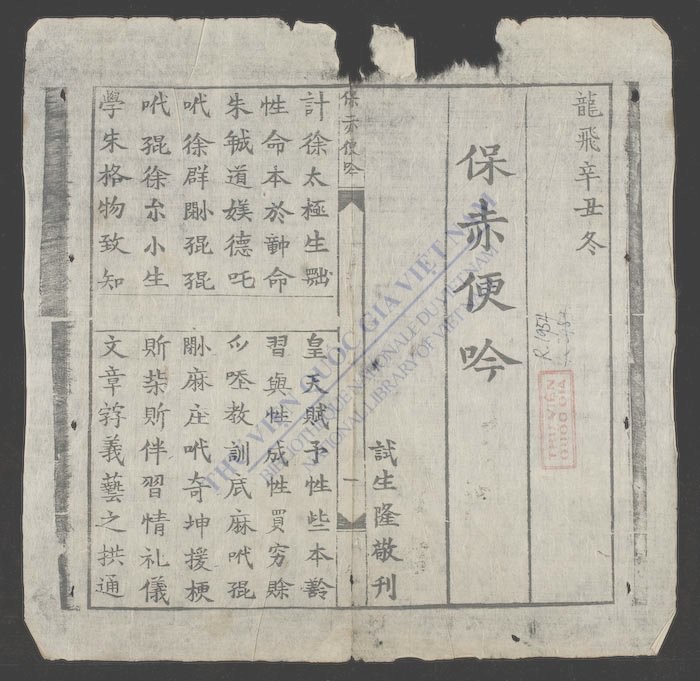 龍飛辛丑冬
保赤便吟
試生隆敬刊
保赤便吟
一
計徐太極生
皇天賦予性些本
性命本於命
習與性成性買穷賖
朱誠道媄德吒
教訓底麻吡猑
吡徐群猑猑
麻庄吡奇坤援梗
吡猑徐尒小生
所柴所伴習情礼儀
學朱格物致知
文章義藝之拱通
R.1954
THƯ VIỆN
QUỐC GIA
THƯ VIỆN QUỐC GIA VIỆT NAM
BIBLIOTHEQUE NATIONALE DU VIETNAM
NATIONAL LIBRARY OF VIETNAM